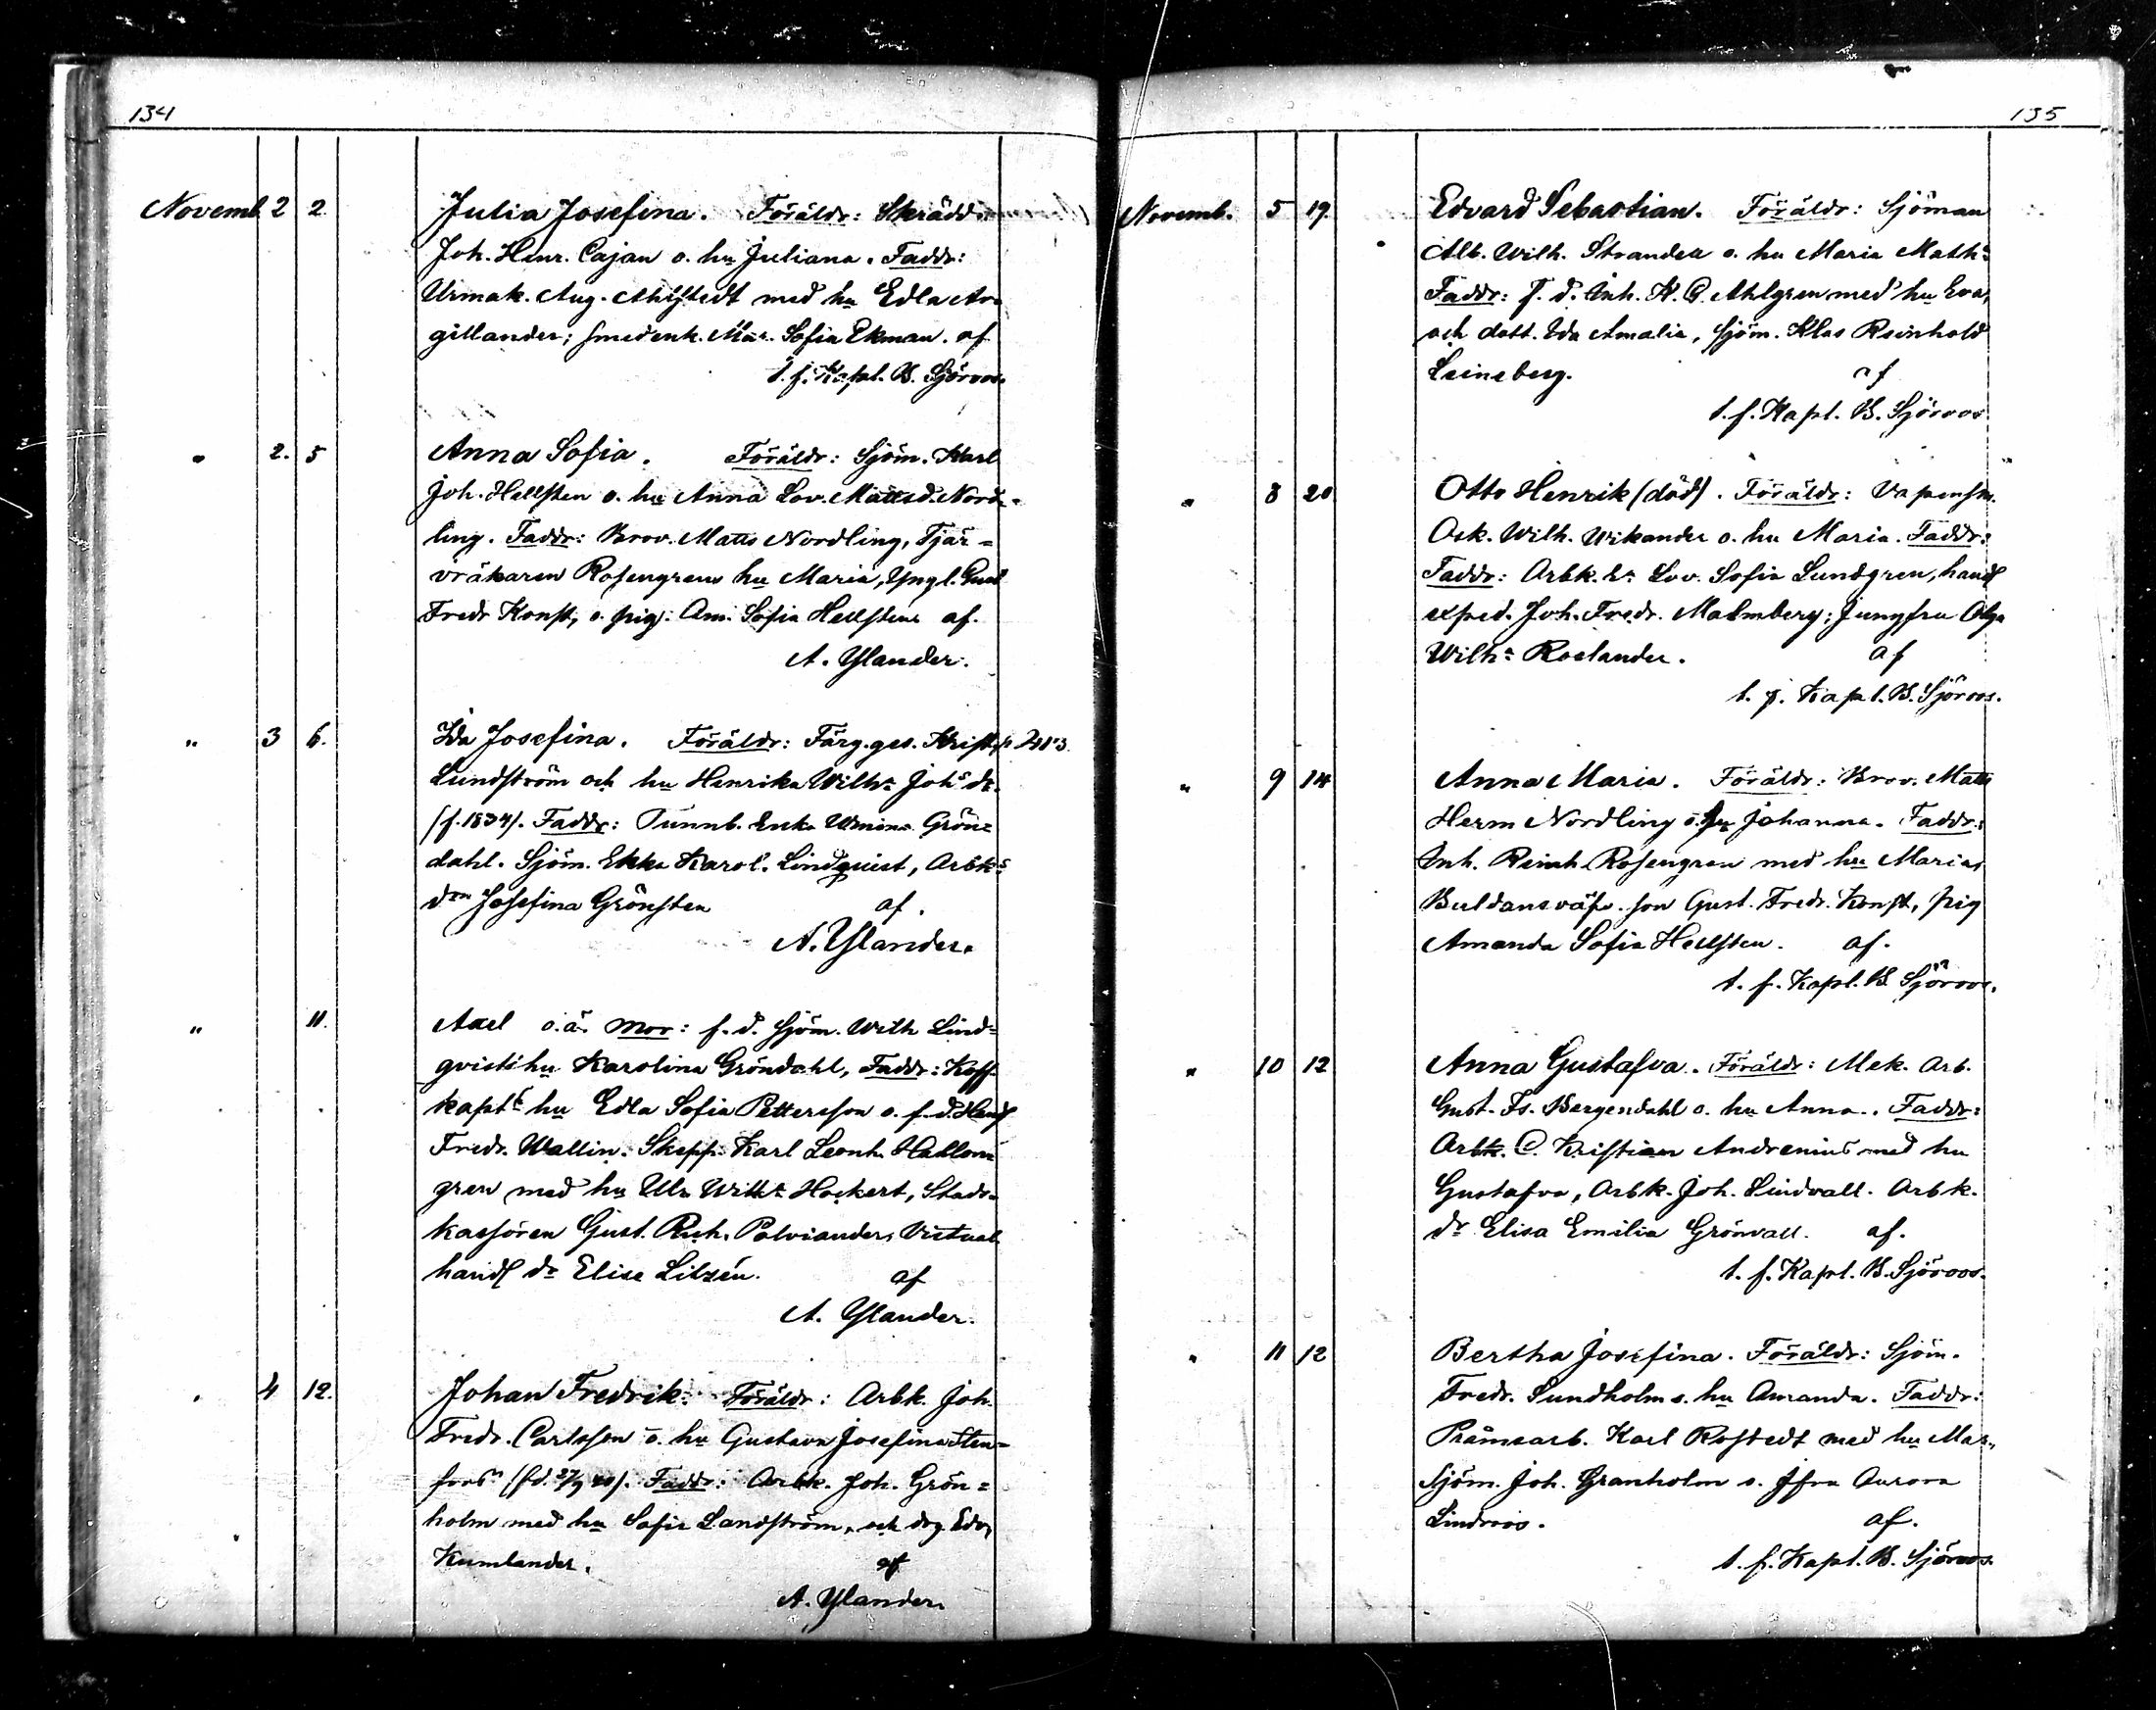 134
Novemb. 2 2. Julia Josefina. Föräldr: Skrädd.
Joh. Henr. Cajan o. hu Juliana. Faddr:
Urmak. Aug. Ahlstedt med hu Edla Ar-
gillander; smedenk. Mar. Sofia Ekman. af
t. f. Kapl. B. Sjöroos.
" 2. 5 Anna Sofia. Föräldr: Sjöm. Karl
Joh. Hellsten o. hu Anna Lov. Mattsd. Nord-
ling. Faddr: Brov. Matts Nordling, Tjär-
vräkaren Rosengrens hu Maria, Yngl. Gust
Fredr. Konst, o. pig. Am. Sofia Hellsten af.
A. Ylander.
" 3 6. Ida Josefina. Föräldr: Färg.ges. Krist.
Lundström och hu Henrika Wilhª Johs dr.
(f. 1834). Faddr: Tunnb. Enka Grön-
dahl. Sjöm. Enka Karol. Lindquist, Arbks
drn Josefina Grönsten af.
A. Ylander.
" 11. Axel o.ä. Mor: f. d. sjöm. Wilh Lind-
qvists hu Karolina Gröndahl, Faddr: Koff.
kapts hu Edla Sofia Pettersson o. f. d. Handl
Fredr. Wallin. Skepp. Karl Leonh. Hahlon-
gren med hu Ulr. Wilhª Hockert, Stads-
kassören Gust. Rich. Polviander, Victual.
handl dr Elise Litzén. af
A. Ylander.
" 4 12. Johan Fredrik. Föräldr: Arbk. Joh.
Fredr. Carlsson o. hu Gustava Josefina Sten-
fors (fd. 27/9 40). Faddr: Arbk. Joh. Grön-
holm med hu Sofia Landström, och drg Edv.
Kumlander. af
A. Ylander.
135
Novemb. 5 19. Edvard Sebastian. Föräldr: Sjöman
Alb. Wilh. Strander o. hu Maria Mathª
Faddr: f. d. Inh. K. G. Ahlgren med hu Eva,
och dott. Ida Amalia, Sjöm. Klas Reinhold
Leineberg. af
t. f. Kapl. B. Sjöroos.
" 8 20 Otto Henrik (död). Föräldr: Vapensm.
Osk. Wilh. Wikander o. hu Maria. Faddr:
Faddr: Arbk. Lov. Sofia Lundgren, handl
exped. Joh. Fredr. Malmberg; Jungfru Olga
Wilhª Roslander. af
t. f. Kapl. B. Sjöroos.
" 9 14 Anna Maria. Föräldr: Brov. Matts
Herm Nordling o. hu Johanna. Faddr:
Inh. Reinh. Rosengren med hu Maria,
Buldansväfv. son Gust. Fredr. Konst, pig
Amanda Sofia Hellsten. af.
t. f. Kapl. B. Sjöroos.
" 10 12 Anna Gustafva. Föräldr: Mek. Arb.
Gust. Fr. Bergendahl o. hu Anna. Faddr:
Arbk. C. Kristian Andrenius med hu
Gustafva, Arbk. Joh. Lindvall. Arbk.
dr Elisa Emilia Grönvall. af.
t. f. Kapl. B. Sjöroos.
" 11 12 Bertha Josefina. Föräldr: Sjöm.
Fredr. Sundholm o. hu Amanda. Faddr:
Pråmsarb. Karl Rostedt med hu Mar.,
Sjöm. Joh. Granholm o. Jfru Aurora
Lindroos. af.
t. f. Kapl. B. Sjöroos.